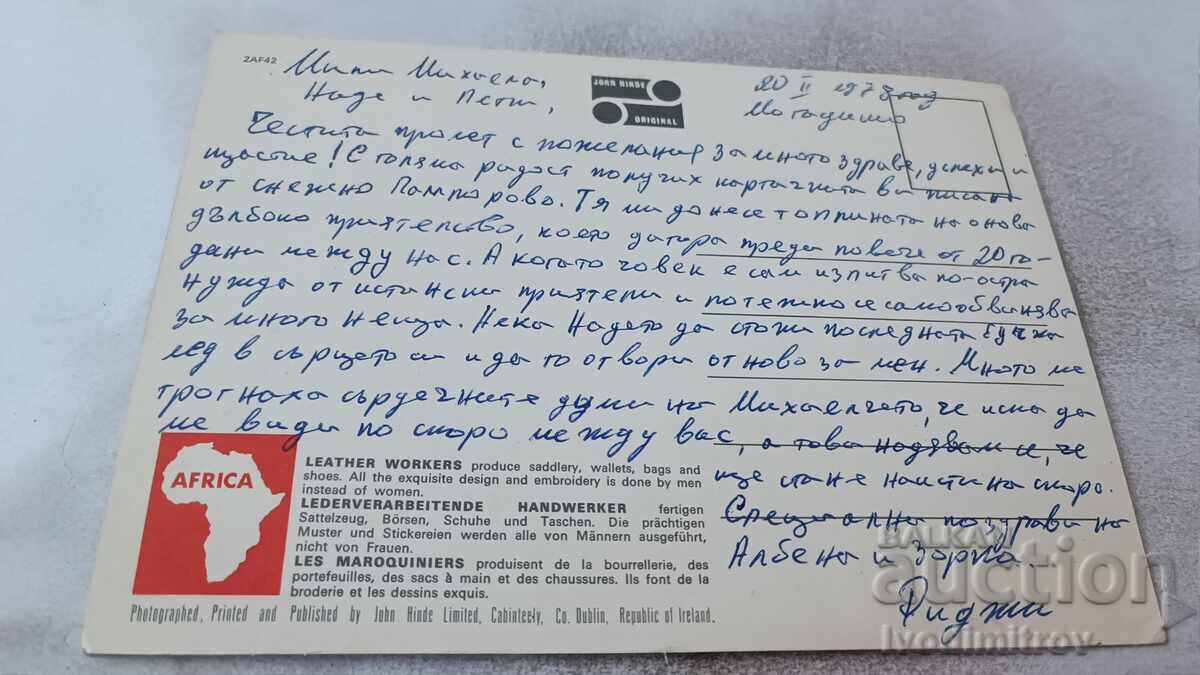 2AF42
Мили Михаела,
Наде и Пети,
JOHN HINDE
ORIGINAL
20 II 1978 год
Могадишо
Честита пролет с пожелания за много здраве, успехи и
щастие! С голяма радост получих картичката ви писана
от снежно Пампорово. Тя ми донесе топлината на онова
дълбоко приятелство, което датира преди повече от 20 го-
дини между нас. А когато човек е сам изпитва по-остра
нужда от истински приятели и по тежко се самообвинява
за много неща. Нека Надето да стопи последната бучка
лед в сърцето си и да го отвори отново за мен. Много ме
трогнаха сърдечните думи на Михаелчето, че иска да
ме види по скоро между вас, а това надявам се, че
ще стане наистина скоро.
Специални поздрави на
Албена и Зорка.
Риджи
AFRICA
LEATHER WORKERS produce saddlery, wallets, bags and
shoes. All the exquisite design and embroidery is done by men
instead of women.
LEDERVERARBEITENDE HANDWERKER fertigen
Sattelzeug, Börsen, Schuhe und Taschen. Die prächtigen
Muster und Stickereien werden alle von Männern ausgeführt,
nicht von Frauen.
LES MAROQUINIERS produisent de la bourrellerie, des
portefeuilles, des sacs à main et des chaussures. Ils font de la
broderie et les dessins exquis.
Photographed, Printed and Published by John Hinde Limited, Cabinteely, Co. Dublin, Republic of Ireland.
BALKAN
auction
Ivodimitrov